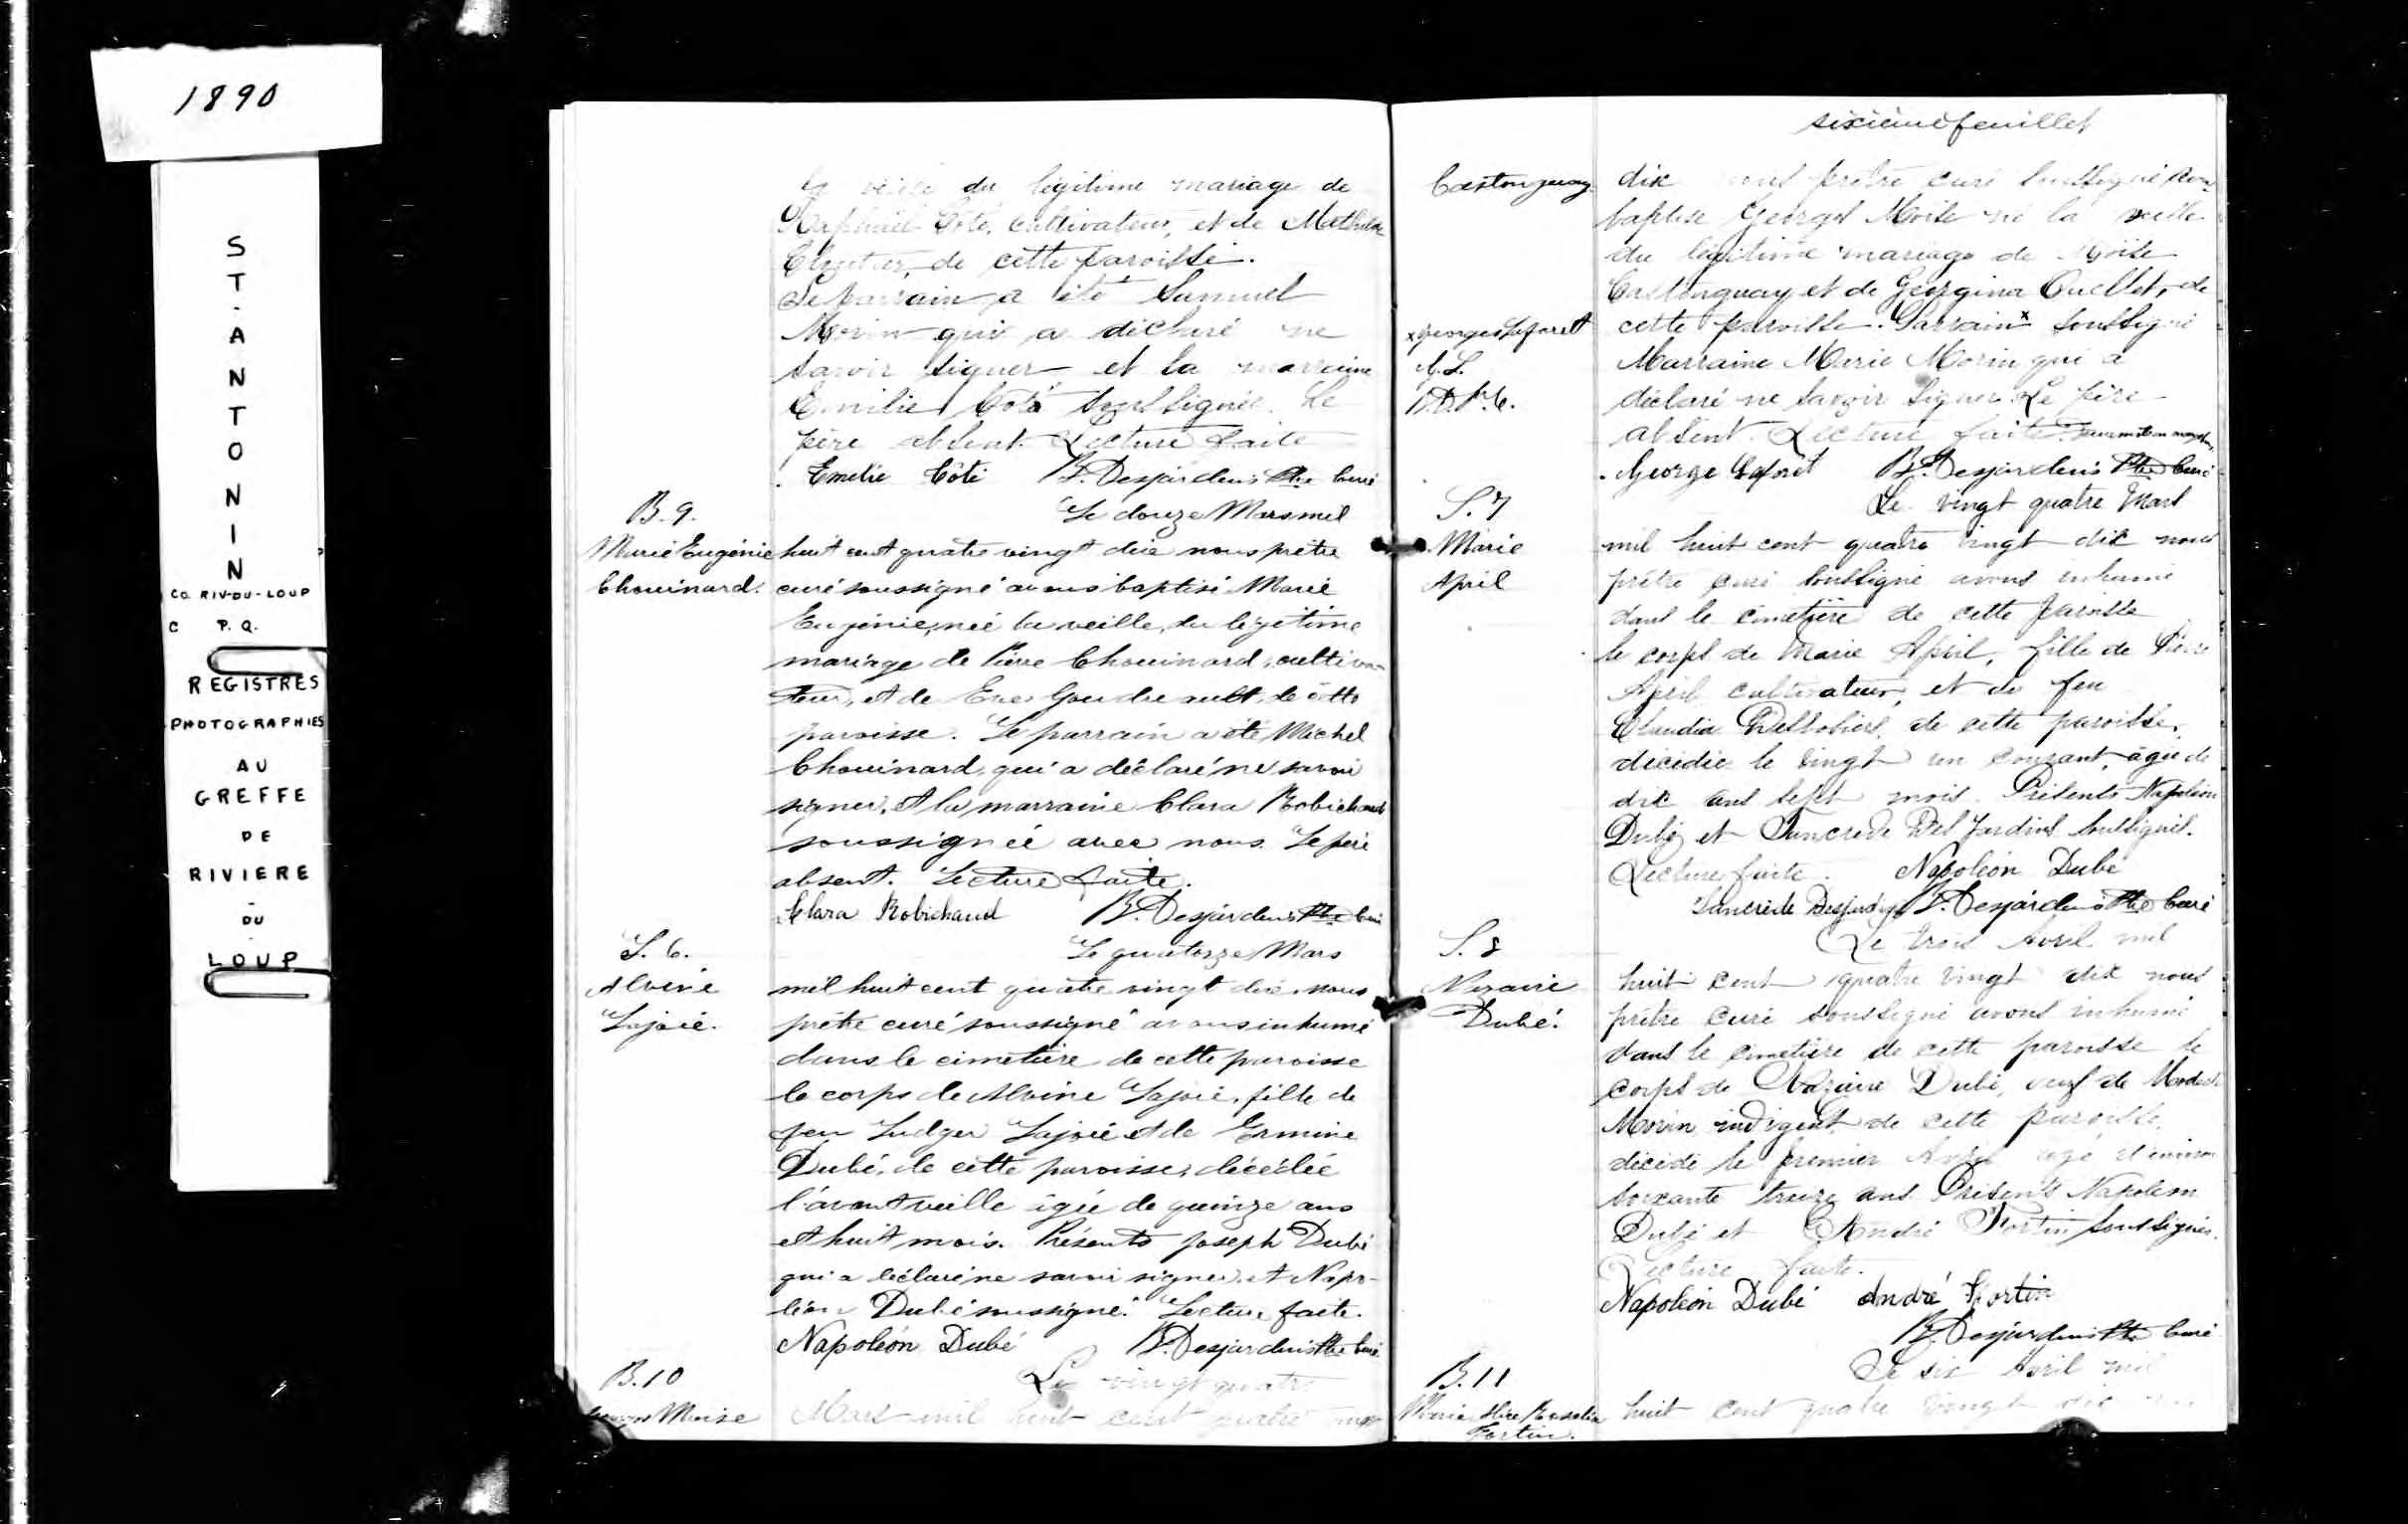 1890
ST-ANTONIN
CO. RIV-DU-LOUP
C P.Q.
REGISTRES
PHOTOGRAPHIES
AU
GREFFE
DE
RIVIERE
-
DU
-
LOUP
la veille du légitime mariage de
Raphaël Côté, cultivateur, et de
de cette paroisse.
Le parrain a été Samuel
Morin qui a déclaré ne
savoir signer et la marraine
Emilie Côté soussignée. Le
père absent. Lecture faite
Emelie Côté B. Desjardins Ptre Curé
B. 9. Le douze Mars mil
Marie Eugénie huit cent quatre vingt dix nous prêtre
Chouinard. curé soussigné avons baptisé Marie
Eugénie, née la veille, du légitime
mariage de Pierre Chouinard, cultiva-
teur, et de de cette
paroisse. Le parrain a été Michel
Chouinard, qui a déclaré ne savoir
signer, et la marraine Clara Robichaud
soussignée avec nous. Le père
absent. Lecture faite.
Clara Robichaud B. Desjardins Ptre Curé
S. 6. Le quatorze Mars
Alvine mil huit cent quatre vingt dix, nous
Lajoie. prêtre curé soussigné avons inhumé
dans le cimetière de cette paroisse
le corps de Alvine Lajoie, fille de
feu Ludger Lajoie et de Ermine
Dubé, de cette paroisse, décédée
l'avant veille âgée de quinze ans
et huit mois. Présents Joseph Dubé
qui a déclaré ne savoir signer, et Napo-
léon Dubé soussigné. Lecture faite.
Napoléon Dubé B. Desjardins Ptre Curé
B. 10 Le vingt quatre
Moise Mars mil huit cent quatre vingt
sixième feuillet
Castonguay dix nous prêtre curé soussigné avons
baptisé George Moïse né la veille
du légitime mariage de Moïse
Castonguay et de Georgina Ouellet, de
x Georges Laforest cette paroisse. Parrain x soussigné
G. L. Marraine Marie Morin qui a
B.D.P.C. déclaré ne savoir signer. Le père
absent. Lecture faite.
George Laforêt B. Desjardins Ptre Curé
S. 7 Le vingt quatre Mars
Marie mil huit cent quatre vingt dix nous
April prêtre curé soussigné avons inhumé
dans le cimetière de cette paroisse
le corps de Marie April, fille de Pierre
April cultivateur, et de feu
Claudia de cette paroisse,
décédée le vingt un courant, âgée de
dix ans sept mois. Présents Napoléon
Dubé et Tancrède Des Jardins soussignés.
Lecture faite. Napoléon Dubé
Tancrède Desjardins B. Desjardins Ptre Curé
S. 8 Le trois Avril mil
Nazaire huit cent quatre vingt dix nous
Dubé. prêtre curé soussigné avons inhumé
dans le cimetière de cette paroisse le
corps de Nazaire Dubé, veuf de
Morin indigent de cette paroisse,
décédé le premier Avril âgé d'environ
soixante treize ans Présents Napoléon
Dubé et André Fortin soussignés.
Lecture faite.
Napoléon Dubé André Fortin
B. Desjardins Ptre Curé
B. 11 Le six Avril mil
Marie Alice Rosalie huit cent quatre vingt dix
Fortin.